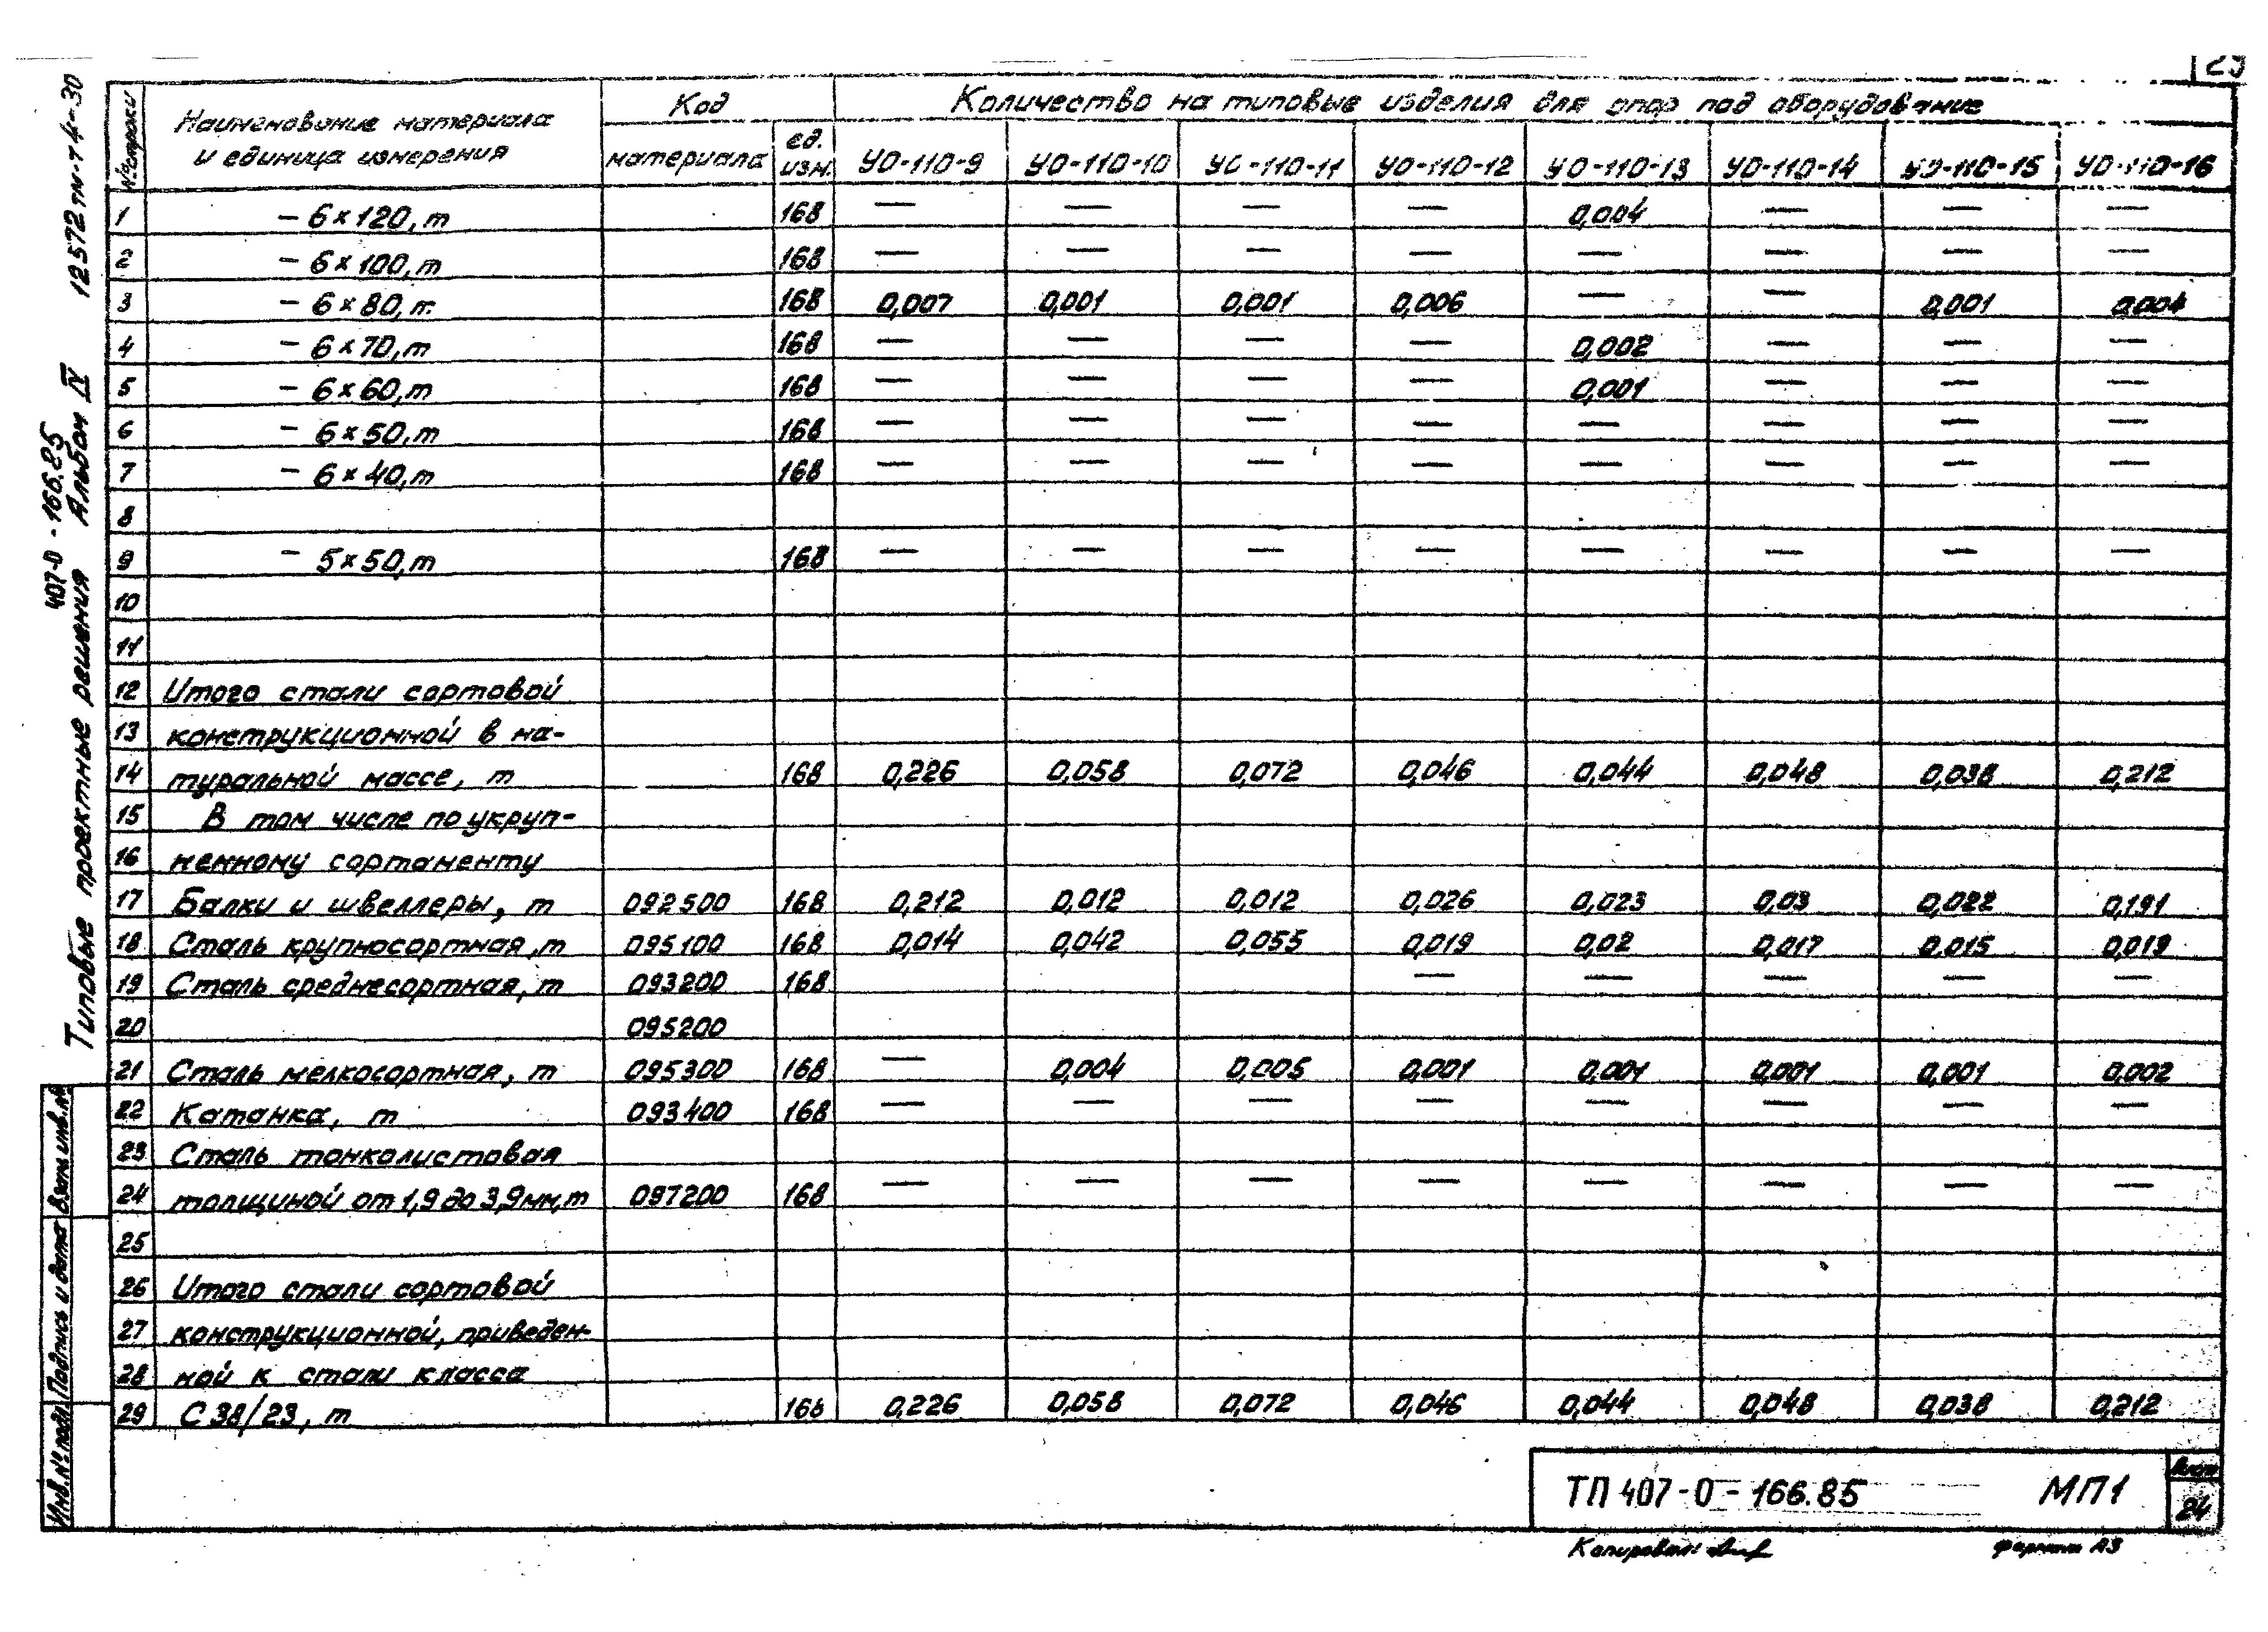 Наименование материала
и единица измерения
№ строки
Код
материала
ед.
изм.
Количество на типовые изделия для опор под оборудование
УО-110-9 УО-110-10 УО-110-11 УО-110-12 УО-110-13 УО-110-14 УО-110-15 УО-110-16
1 – 6×120, т 168 — — — — 0,004 — — —
2 – 6×100, т 168 — — — — — — — —
3 – 6×80, т 168 0,007 0,001 0,001 0,006 — — 0,001 0,004
4 – 6×70, т 168 — — — — 0,002 — — —
5 – 6×60, т 168 — — — — 0,001 — — —
6 – 6×50, т 168 — — — — — — — —
7 – 6×40, т 168 — — — — — — — —
8
9 – 5×50, т 168 — — — — — — — —
10
11
12 Итого стали сортовой
13 конструкционной в на-
14 туральной массе, т 168 0,226 0,058 0,072 0,046 0,044 0,048 0,038 0,212
15 В том числе по укруп-
16 ненному сортаменту
17 Балки и швеллеры, т 092500 168 0,212 0,012 0,012 0,026 0,023 0,03 0,022 0,191
18 Сталь крупносортная, т 095100 168 0,014 0,042 0,055 0,019 0,02 0,017 0,015 0,019
19 Сталь среднесортная, т 093200 168 — — — — —
20 095200
21 Сталь мелкосортная, т 095300 168 — 0,004 0,005 0,001 0,001 0,001 0,001 0,002
22 Катанка, т 093400 168 — — — — — — — —
23 Сталь тонколистовая
24 толщиной от 1,9 до 3,9 мм, т 097200 168 — — — — — — — —
25
26 Итого стали сортовой
27 конструкционной, приведен-
28 ной к стали класса
29 С 38/23, т 168 0,226 0,058 0,072 0,046 0,044 0,048 0,038 0,212
407-0-166.85
Типовые проектные решения Альбом IX 12572тм-т4-30
Инв.№ подл. Подпись и дата Взам инв.№
ТП 407-0-166.85 МП1
Лист
24
Копировал:
формат А3